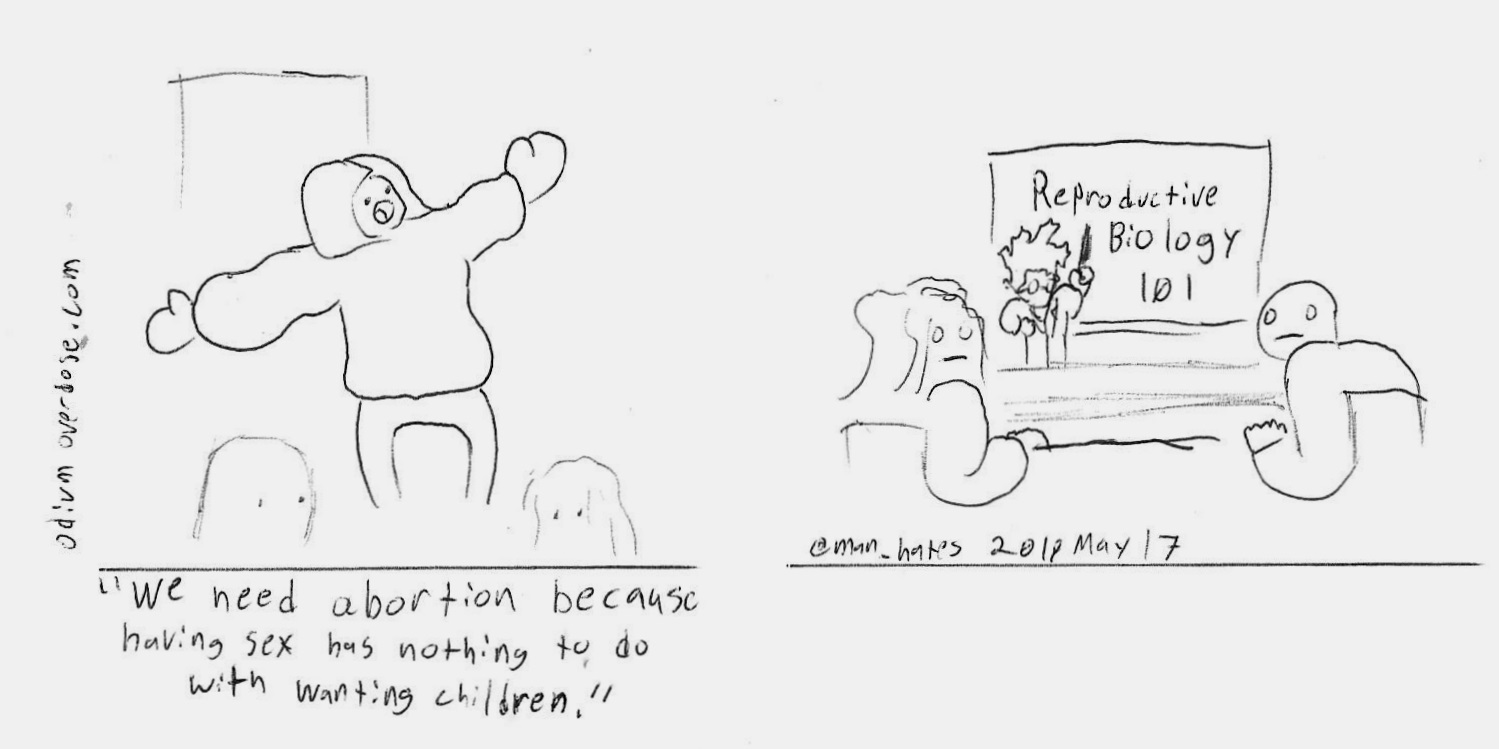 odium overdose.com
"We need abortion because
having sex has nothing to do
with wanting children."
Reproductive
Biology
101
@man_hates 2018 May 17